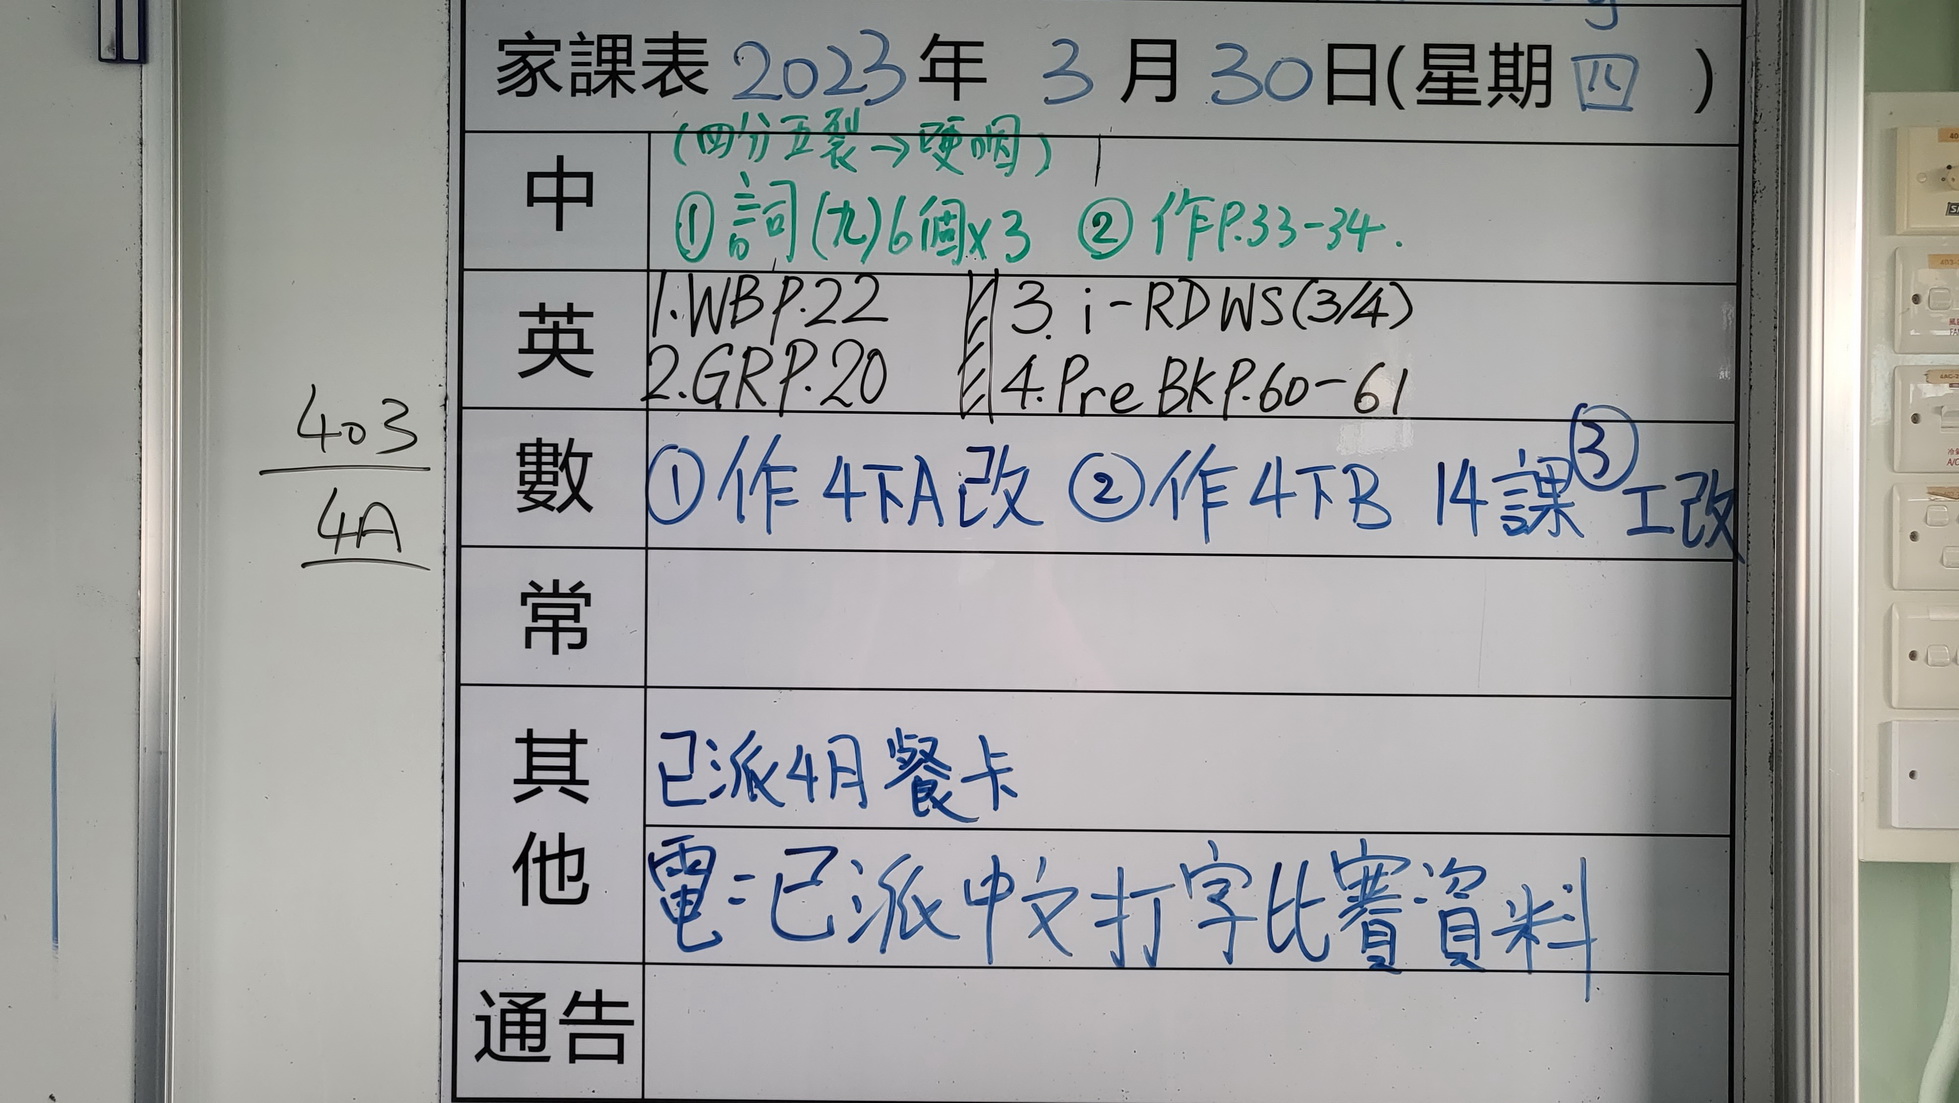 家課表 2023年 3月30日(星期四)
中
(四分五裂→哽咽)
①詞(九)6個x3 ②作P.33-34.
英
1.WBP.22 3. i-RDWS(3/4)
2.GRP.20 4.Pre BKP.60-61
403
4A
數
①作4下A改 ②作4下B 14課 ③工改
常
其他
已派4月餐卡
電:已派中文打字比賽資料
通告